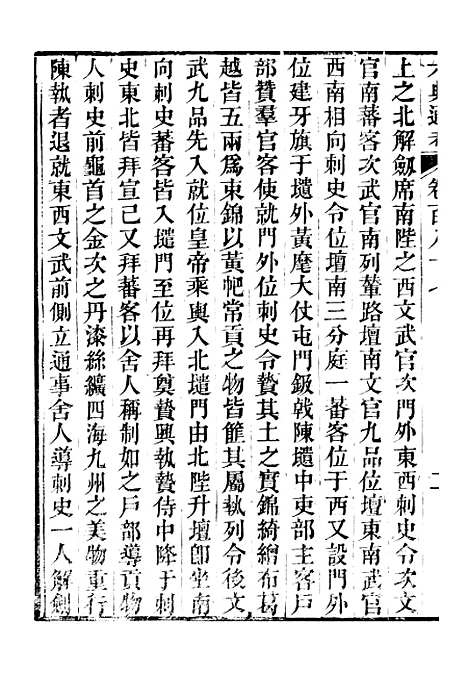 六典通考 卷一百八十七
上之北解劒席南陛之西文武官次門外東西刺史令次文
官南蕃客次武官南列轝路壇南文官九品位壇東南武官
西南相向刺史令位壇南三分庭一蕃客位于西又設門外
位建牙旗于壝外黃麾大仗屯門鈒戟陳壝中吏部主客戶
部贊羣官客使就門外位刺史令贄其土之實錦綺繒布葛
越皆五兩爲束錦以黃帊常貢之物皆篚其屬執列令後文
武九品先入就位皇帝乘輿入北壝門由北陛升壇卽坐南
向刺史蕃客皆入壝門至位再拜奠贄興執贄侍中降于刺
史東北皆拜宣已又拜蕃客以舍人稱制如之戶部導貢物
人刺史前龜首之金次之丹漆絲纊四海九州之美物重行
陳執者退就東西文武前側立通事舍人導刺史一人解劍